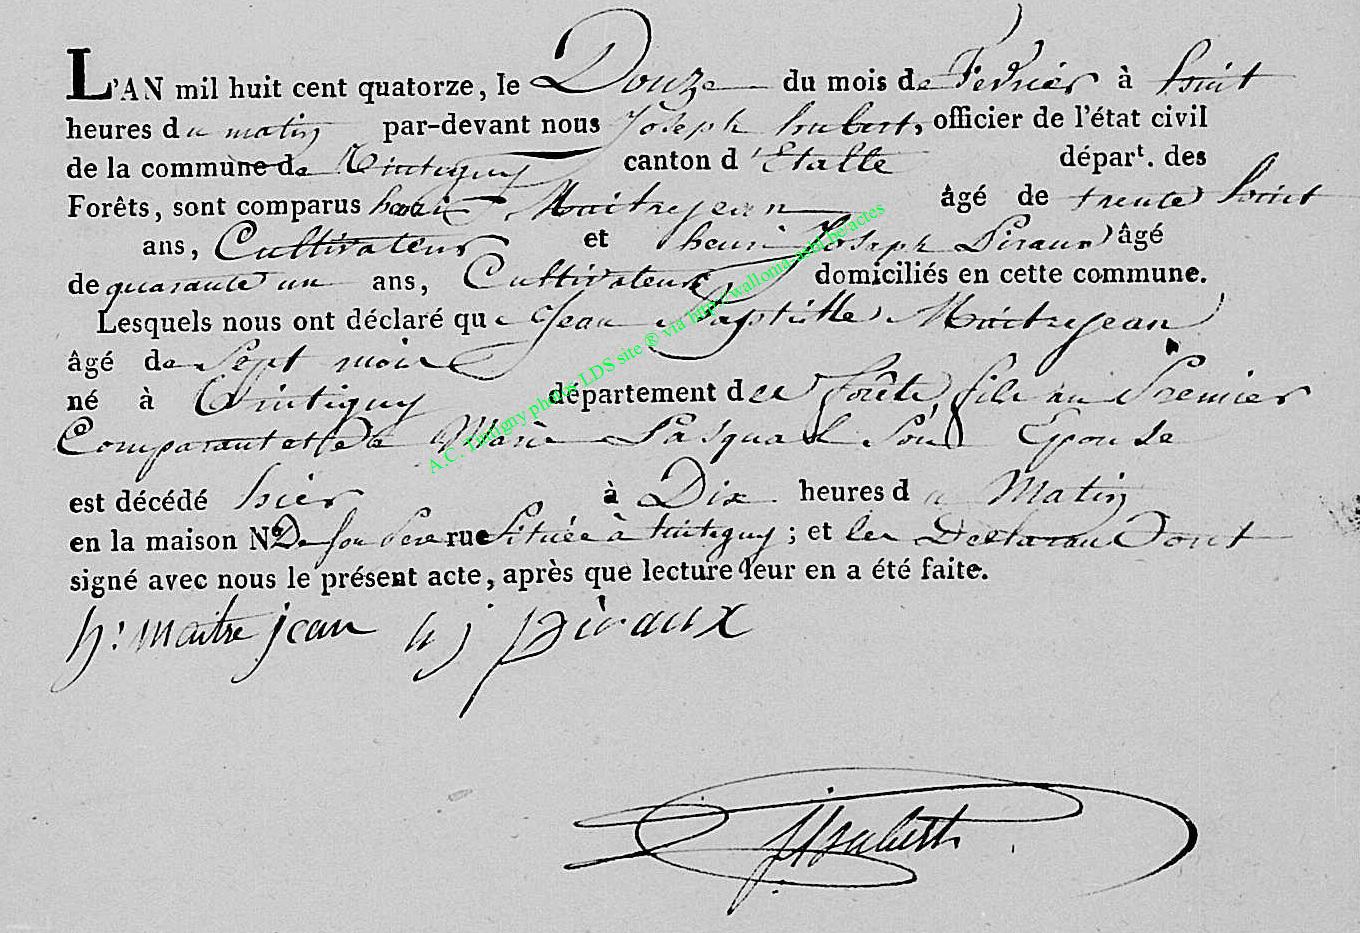 L'AN mil huit cent quatorze, le Douze du mois de Fevrier à huit
heures du matin par-devant nous Joseph hubert, officier de l'état civil
de la commune de Tintigny canton d'Etalleépar<sup>t</sup>. des
Forêts, sont comparus henri Maitrejean âgé de trente huit
ans, Cultivateur et henri Joseph Piraux âgé
de quarante un ans, Cultivateur domiciliés en cette commune.
Lesquels nous ont déclaré que Jean Baptiste Maitrejean
âgé de Sept mois
né à Tintigny département des forêts fils du Premier
Comparant et de Marie Pasqual Son Epouse
est décédé hier à Dix heures du Matin
en la maison N° De son Pere rue Située à tintigny ; et les Declarans Sont
signé avec nous le présent acte, après que lecture leur en a été faite.
h: maitrejean h j piraux
JHubert
A.C. Tintigny photos LDS site ® via http://wallonia.asbl.be/actes